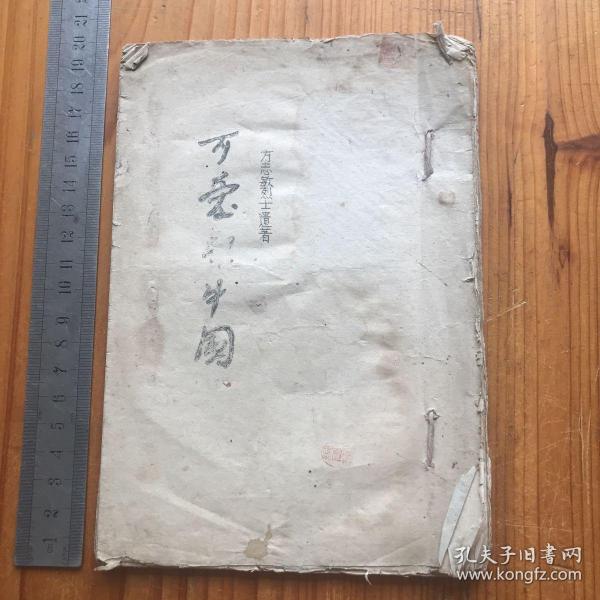 方志敏烈士遺著
可爱的中国
1 2 3 4 5 6 7 8 9 10 11 12 13 14 15 16 17 18 19 20 21
孔夫子旧书网
www.kongfz.com